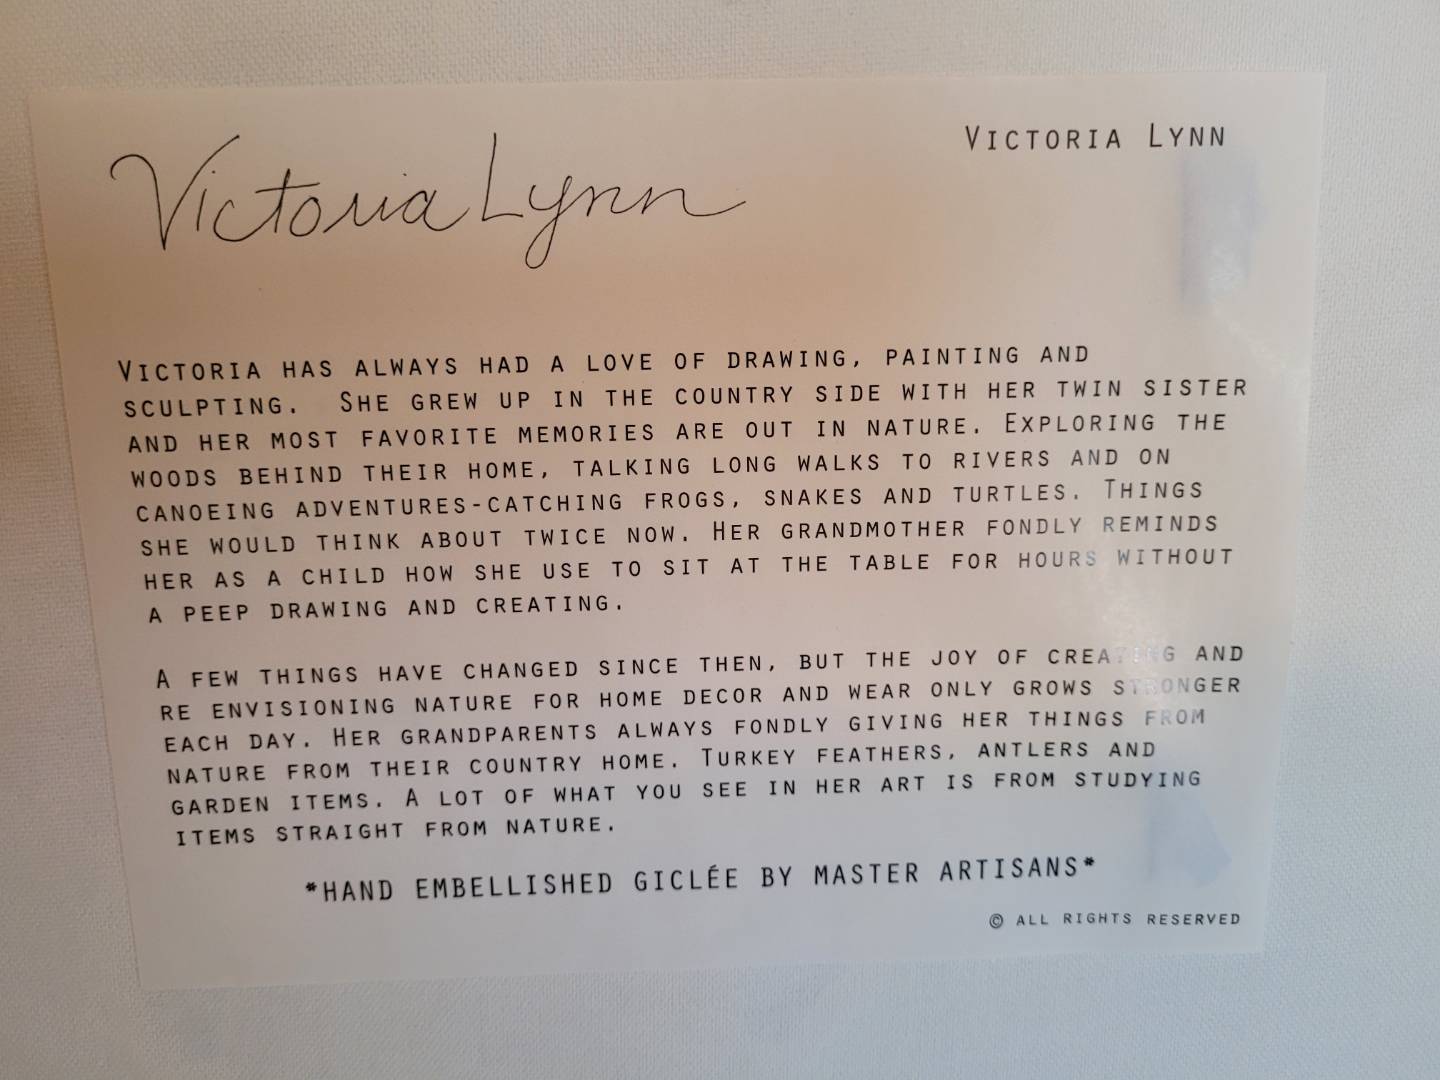 Victoria Lynn
VICTORIA LYNN
VICTORIA HAS ALWAYS HAD A LOVE OF DRAWING, PAINTING AND
SCULPTING. SHE GREW UP IN THE COUNTRY SIDE WITH HER TWIN SISTER
AND HER MOST FAVORITE MEMORIES ARE OUT IN NATURE. EXPLORING THE
WOODS BEHIND THEIR HOME, TALKING LONG WALKS TO RIVERS AND ON
CANOEING ADVENTURES-CATCHING FROGS, SNAKES AND TURTLES. THINGS
SHE WOULD THINK ABOUT TWICE NOW. HER GRANDMOTHER FONDLY REMINDS
HER AS A CHILD HOW SHE USE TO SIT AT THE TABLE FOR HOURS WITHOUT
A PEEP DRAWING AND CREATING.
A FEW THINGS HAVE CHANGED SINCE THEN, BUT THE JOY OF CREATING AND
RE ENVISIONING NATURE FOR HOME DECOR AND WEAR ONLY GROWS STRONGER
EACH DAY. HER GRANDPARENTS ALWAYS FONDLY GIVING HER THINGS FROM
NATURE FROM THEIR COUNTRY HOME. TURKEY FEATHERS, ANTLERS AND
GARDEN ITEMS. A LOT OF WHAT YOU SEE IN HER ART IS FROM STUDYING
ITEMS STRAIGHT FROM NATURE.
*HAND EMBELLISHED GICLÉE BY MASTER ARTISANS*
© ALL RIGHTS RESERVED